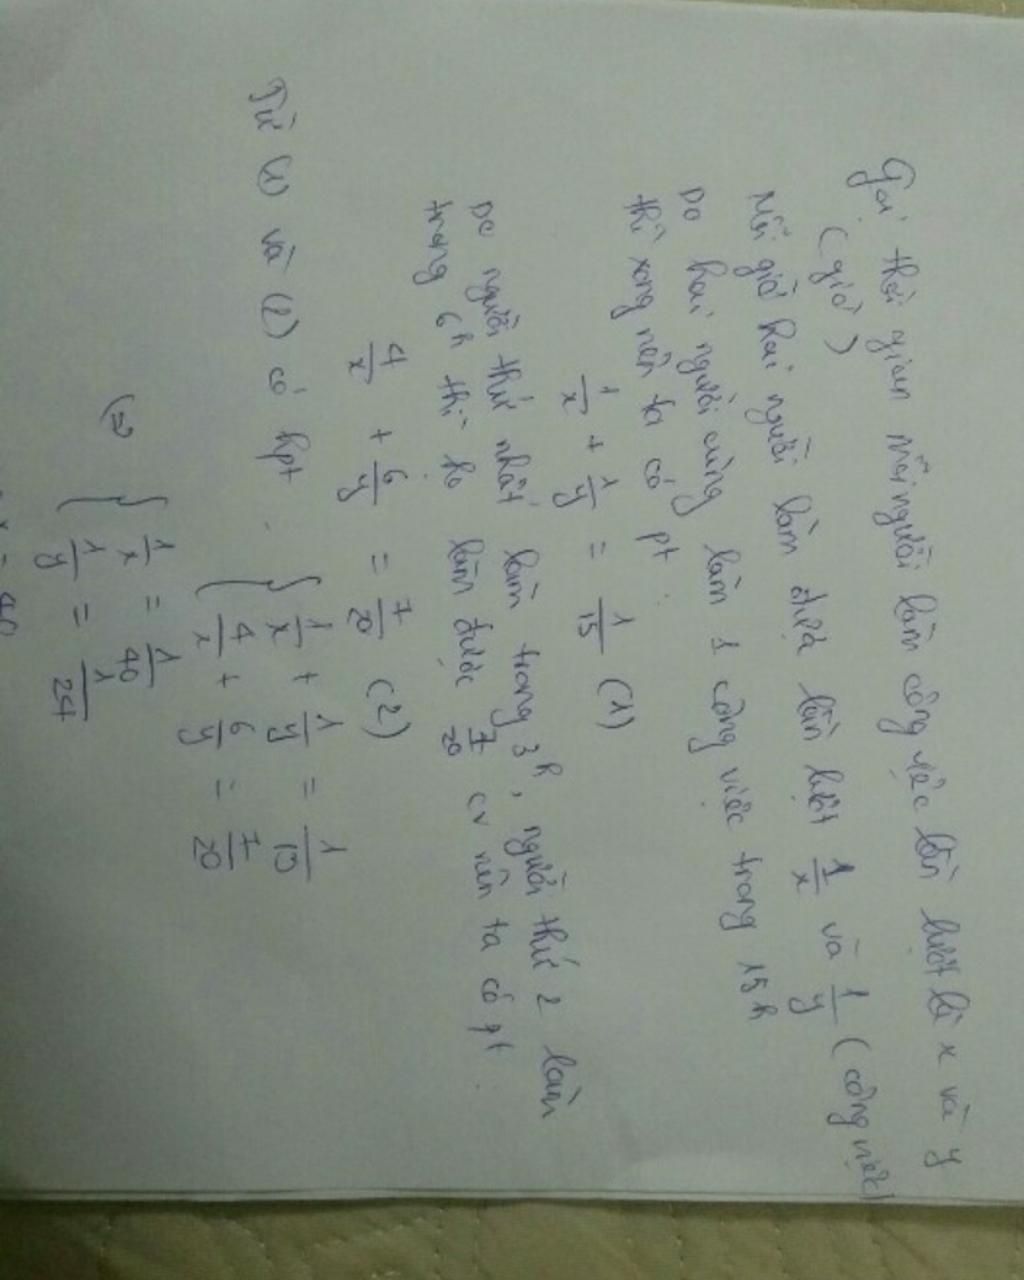 Gọi thời gian mỗi người làm công việc lần lượt là x và y
(giờ)
Mỗi giờ hai người làm được lần lượt 1/x và 1/y (công việc)
Do hai người cùng làm 1 công việc trong 15h
thì xong nên ta có pt
1/x + 1/y = 1/15 (1)
Do người thứ nhất làm trong 3h, người thứ 2 làm
trong 6h thì họ làm được 7/20 cv nên ta có pt.
4/x + 6/y = 7/20 (2)
Từ (1) và (2) có hpt
{ 1/x + 1/y = 1/15
4/x + 6/y = 7/20
(=) { 1/x = 1/40
1/y = 1/24